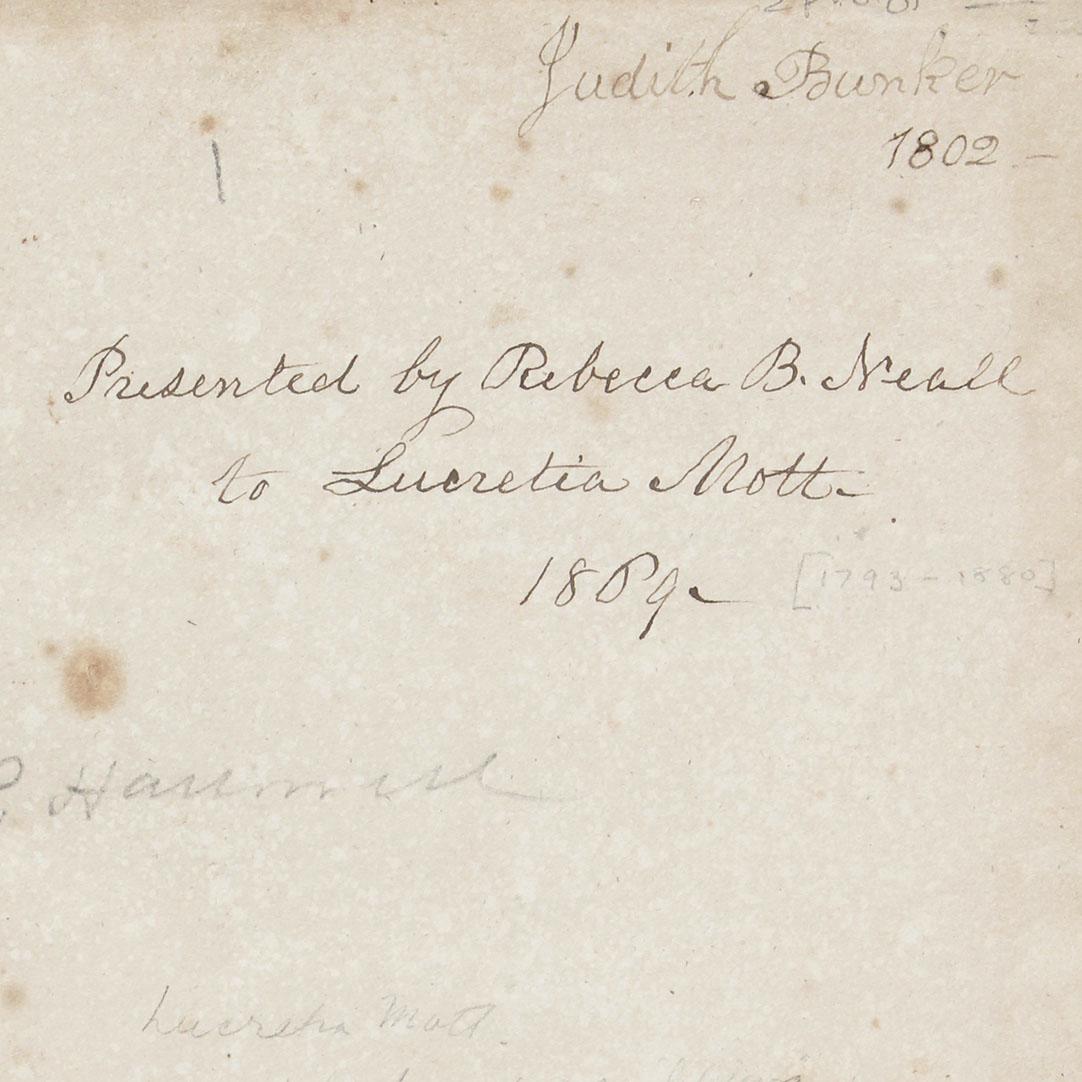 Judith Bunker
1802 –
Presented by Rebecca B. Neall
to Lucretia Mott.
1869.
[1793 – 1880]
Lucretia Mott.